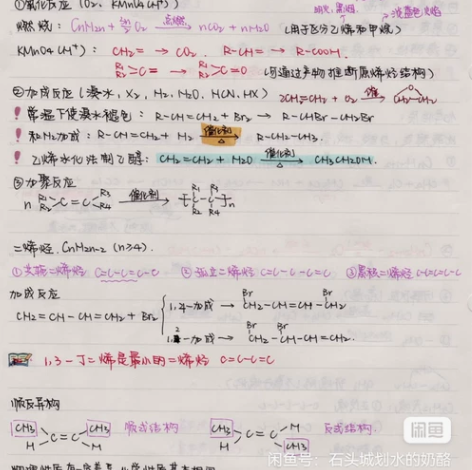 ①氧化反应 (O₂、KMnO₄(H⁺))
燃烧: CnH2n + 3n/2 O₂ —点燃→ nCO₂ + nH₂O (用于区分乙烯和甲烷)
KMnO₄ (H⁺): CH₂= → CO₂ R-CH= → R-COOH
R₁ R₂ >C= → R₁ R₂ >C=O (可通过产物推断原烯烃结构)
②加成反应 (溴水, X₂, H₂, H₂O, HCN, HX) 2CH₂=CH₂ + O₂ → CH₂-CH₂ O
! 常温下使溴水褪色: R-CH=CH₂ + Br₂ → R-CHBr-CH₂Br
! 和H₂加成: R-CH=CH₂ + H₂ —催化剂 △→ R-CH₂-CH₃
! 乙烯水化法制乙醇: CH₂=CH₂ + H₂O —催化剂 △→ CH₃CH₂OH.
③加聚反应
n R₁ R₂ >C=C< R₃ R₄ —催化剂→ [C-C]n R₁ R₃ R₂ R₄
二烯烃 CnH2n-2 (n≥4).
①共轭二烯烃 C=C-C=C-C ②孤立二烯烃 C=C-C-C=C ③累积二烯烃 C=C=C-C-C
加成反应
CH₂=CH-CH=CH₂ + Br₂
1,4-加成 → Br CH₂-CH=CH-CH₂ Br
1,2-加成 → Br Br CH₂-CH-CH=CH₂.
1,3-丁二烯是最小的二烯烃 C=C-C=C
顺反异构
CH₃ H >C=C< CH₃ H 顺式结构 CH₃ H >C=C< H CH₃ 反式结构.
闲鱼
闲鱼号: 石头城划水的奶酪